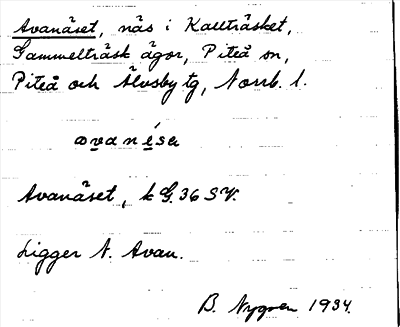 Avanäset, näs i Kallträsket,
Gammelträsk ägor, Piteå sn,
Piteå och Älvsby tg, Norrb. l.
avanésa
Avanäset, k G. 36 SV.
Ligger N. Avan.
B. Nygren 1934.